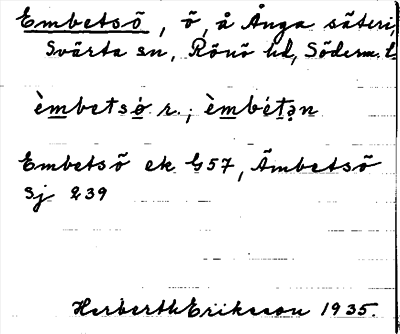 Embetsö, ö, å Änga säteri,
Svärta sn, Rönö hd, Söderm. l.
èmbetsö́ r.; èmbétən
Embetsö ek G57, Ämbetsö
Sj 239
Herberth Eriksson 1935.